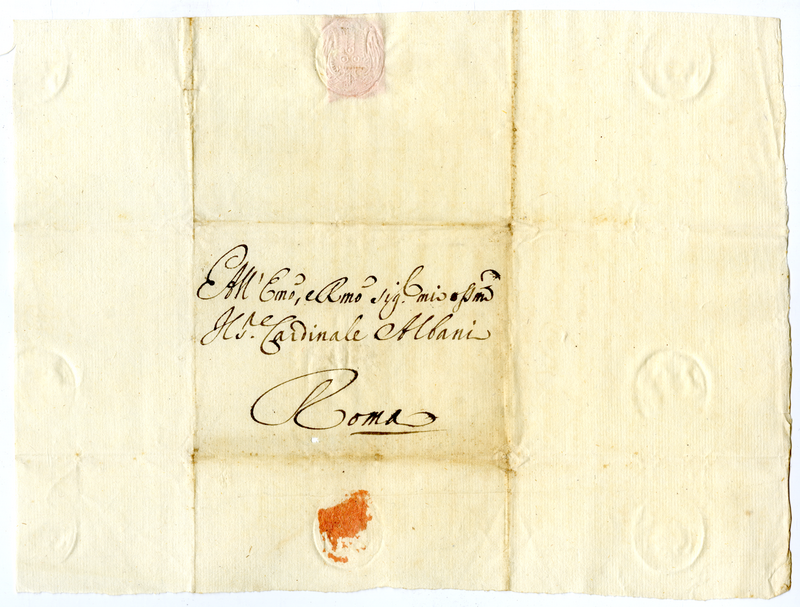 All' Emo, e Rmo Sigr mio ossmo
Il Sre Cardinale Albani
Roma